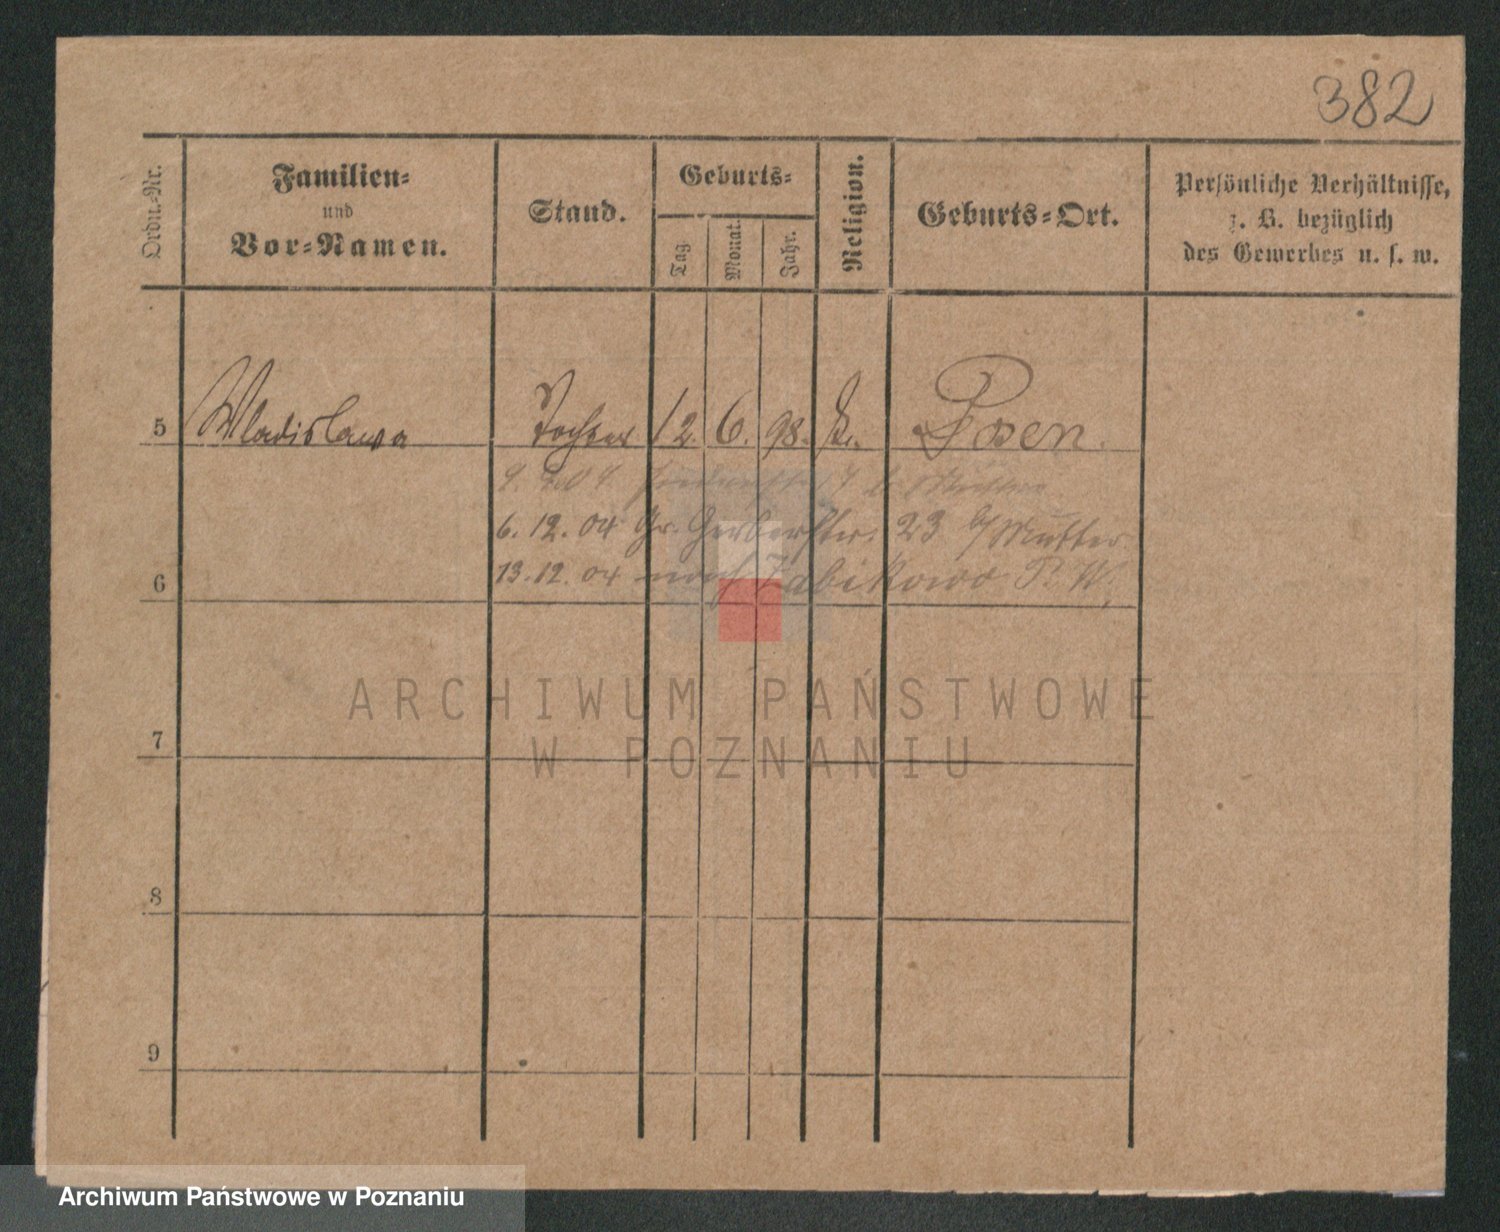 382
Ordn.-Nr.
Familien-
und
Vor-Namen.
Stand.
Geburts-
Tag
Monat.
Jahr.
Religion.
Geburts-Ort.
Persönliche Verhältnisse,
z. B. bezüglich
des Gewerbes u. s. w.
5 Wladislawa Tochter 12. 6. 98. k. Posen.
6.12.04 Gr. Gerberstr. 23 b/Mutter
6 13.12.04 nach Zabikowo P. W.
7
8
9
ARCHIWUM PAŃSTWOWE
W POZNANIU
Archiwum Państwowe w Poznaniu